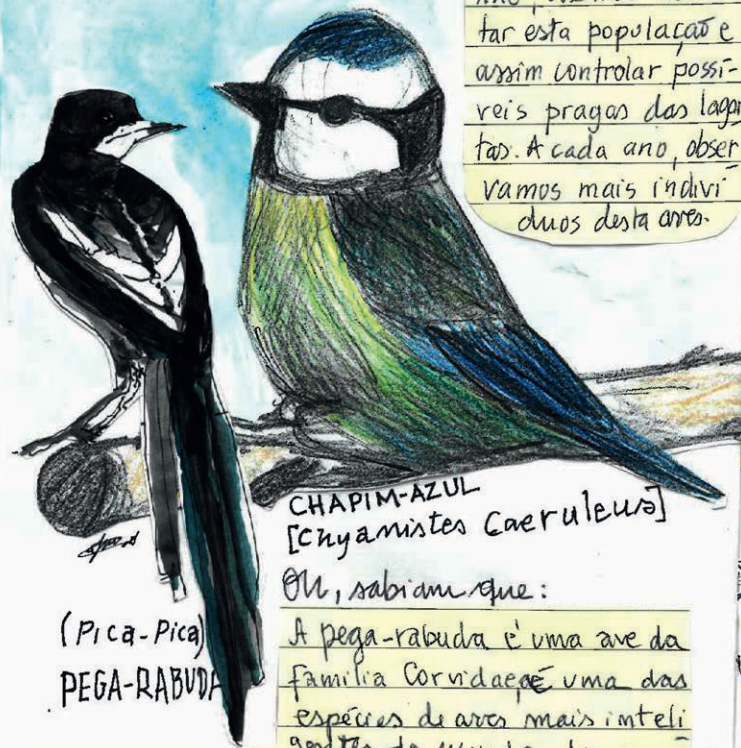 tar esta população e
assim controlar possí-
veis pragas das lagar
tas. A cada ano, obser
vamos mais indiví
duos desta aves.
CHAPIM-AZUL
[Chyanistes Caeruleus]
(Pica-Pica)
PEGA-RABUDA
Oh, sabiam que:
A pega-rabuda é uma ave da
família Corvidae e é uma das
espécies de aves mais inteli